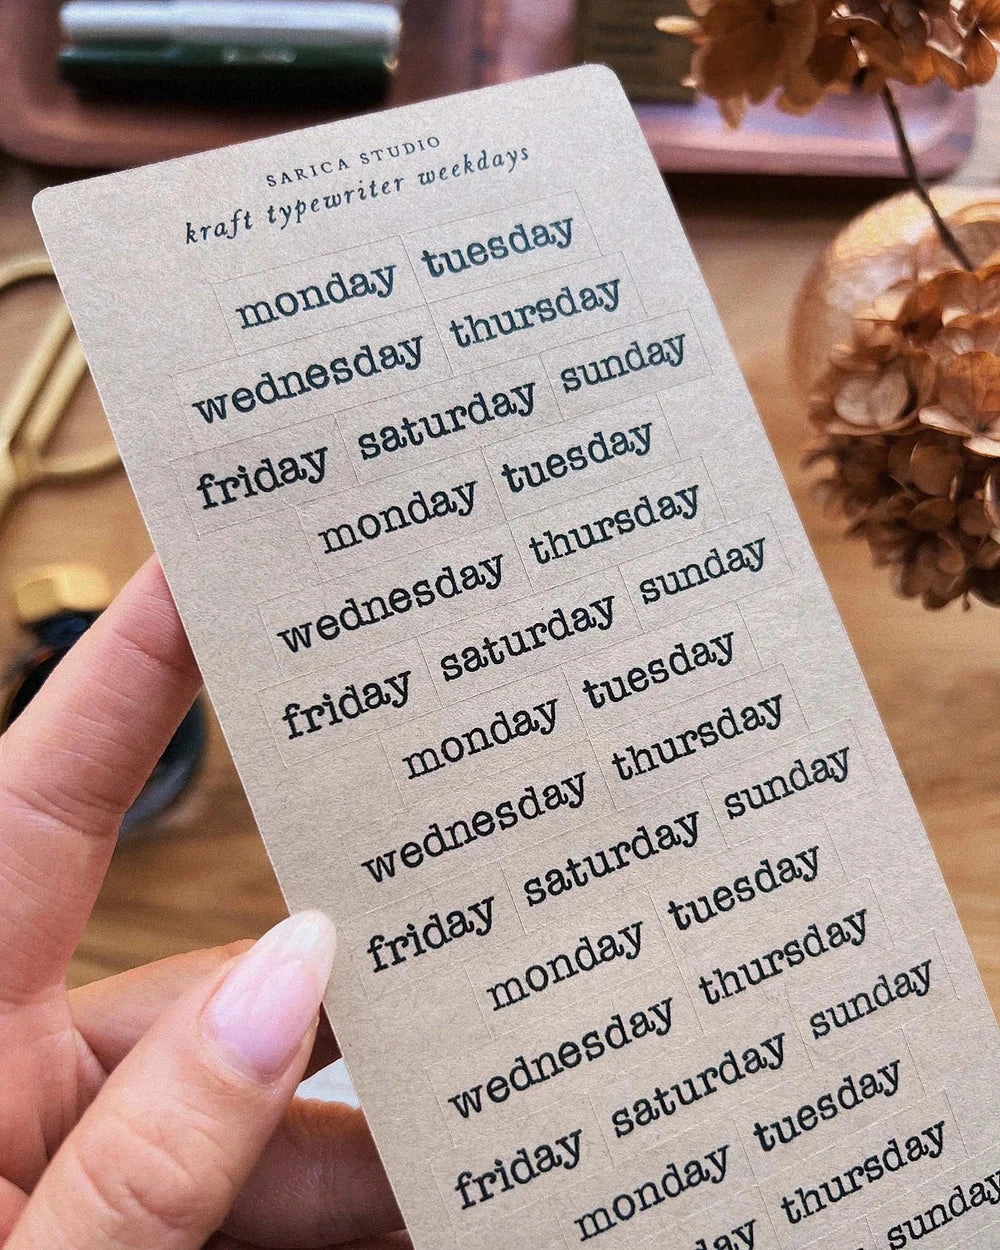 SARICA STUDIO
kraft typewriter weekdays
monday tuesday
wednesday thursday
friday saturday sunday
monday tuesday
wednesday thursday
friday saturday sunday
monday tuesday
wednesday thursday
friday saturday sunday
monday tuesday
wednesday thursday
friday saturday sunday
monday tuesday
day thursday
sunday